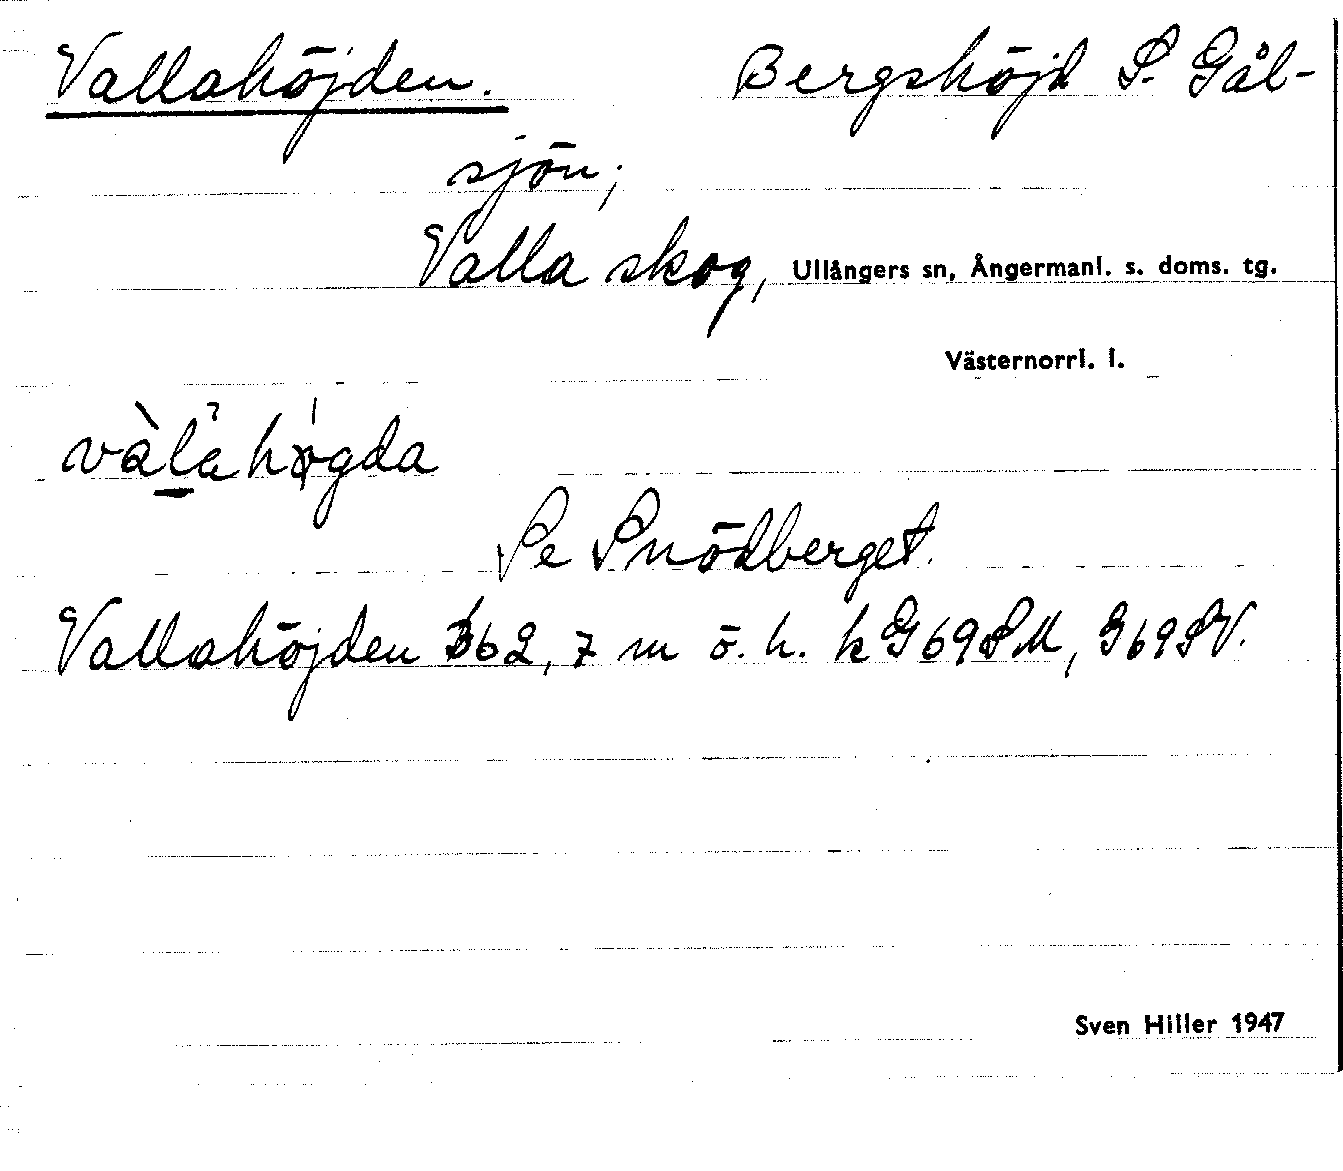 Vallahöjden. Bergshöjd S. Gål-
sjön;
Valla skog, Ullångers sn, Ångermanl. s. doms. tg.
Västernorrl. l.
vàlahøgda
Se Snödberget.
Vallahöjden 362,7 m ö. h. k G69SM, G69SV.
Sven Hiller 1947